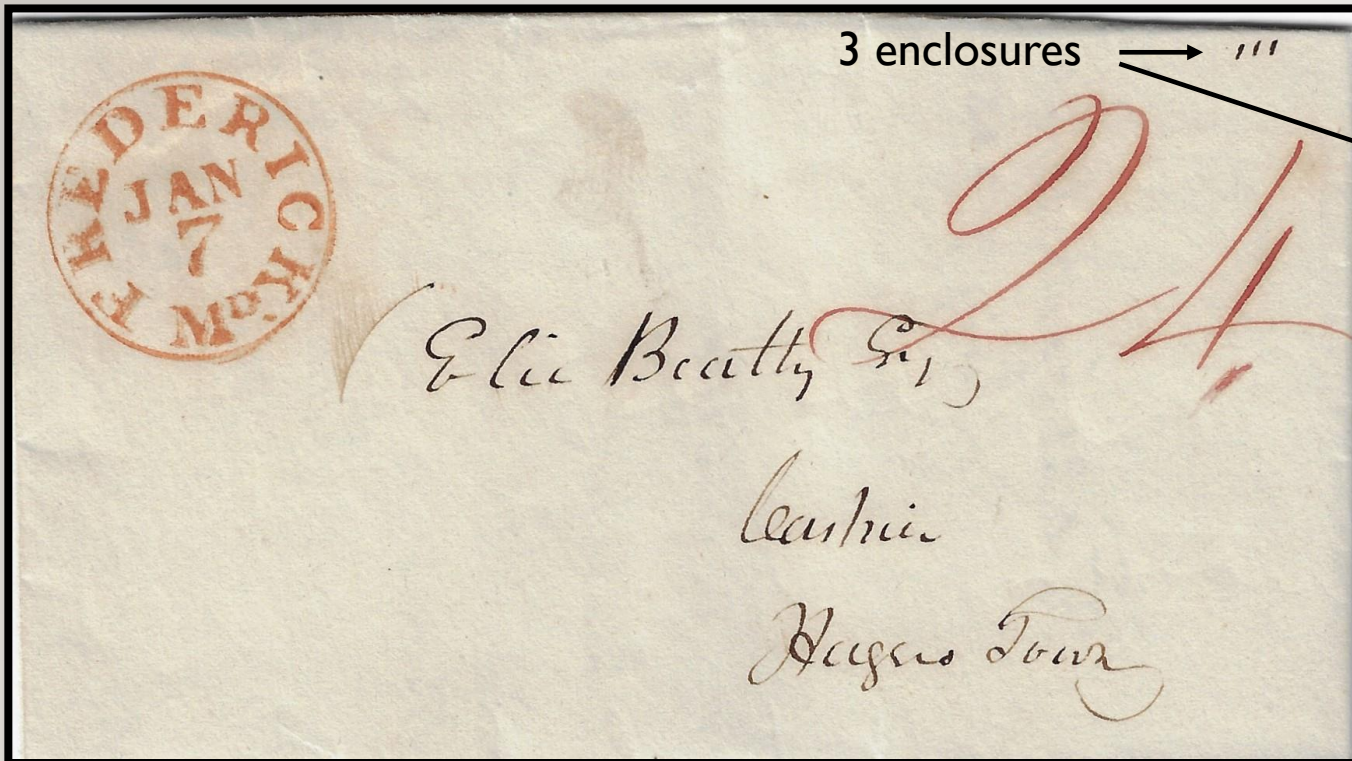 3 enclosures
'''
FREDERICK Md
JAN
7
24
Elie Beatty Esq
Cashier
Hagers Town